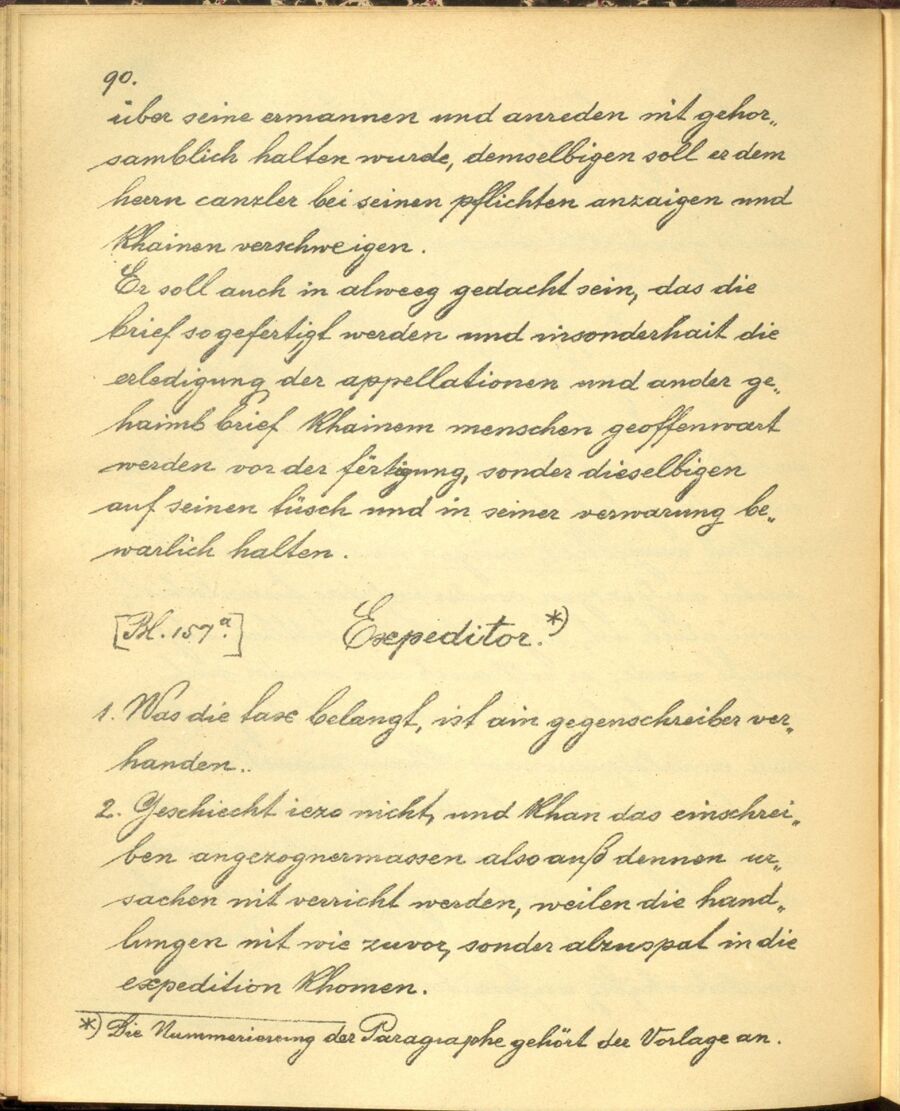 90.
über seine ermannen und anreden nit gehor„
samblich halten wurde, demselbigen soll er dem
herrn canzler bei seinen pflichten anzaigen und
khainen verschweigen.
Er soll auch in alweeg gedacht sein, das die
brief so gefertigt werden und insonderhait die
erledigung der appellationen und ander ge„
haimb brief khainem menschen geoffenwart
werden vor der fertigung, sonder dieselbigen
auf seinen tüsch und in seiner verwarung be„
warlich halten.
[Bl. 157a.] Expeditor.*)
1. Was die tax belangt, ist ain gegenschreiber ver„
handen.
2. Geschiecht iezo nicht, und khan das einschrei„
ben angezognermassen also auß dennen ur„
sachen nit verricht werden, weilen die hand„
lungen nit wie zuvor, sonder alzuspat in die
expedition khomen.
*) Die Nummerierung der Paragraphe gehört der Vorlage an.